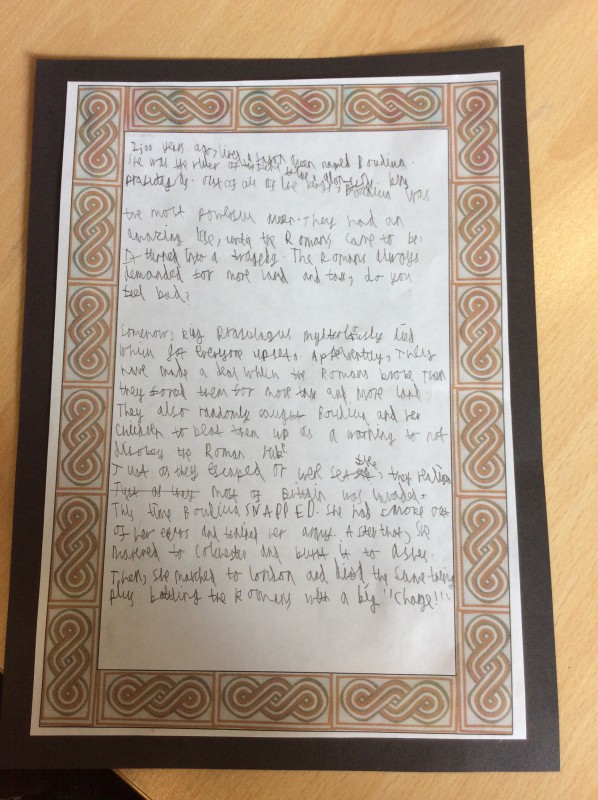 2,000 years ago, lived a queen named Boudica.
She was the ruler of the
Prasutagus. out of all of the Boudica was
the most powerful queen. They had an
amazing life, until the Romans came to be.
It turned into a tragedy. The Romans always
demanded for more land and tax, do you
feel bad?
Somehow, king Prasutagus mysteriously died
which left everyone upset. Apperently, they
have made a deal when the Romans broke then
they forced them for more tax and more land
They also randomly caught Boudica and her
children to beat them up as a warning to not
disobey the Roman rule
Just as they escaped or were set free, they realised
Just as they most of Britain was invaded.
This time Boudica SNAPPED. She had smoke out
of her ears and trained her army. After that, she
marched to Colchester and burnt it to ashes.
Then, she marched to London and did the same thing
plus battling the Romans with a big "Charge!!!"